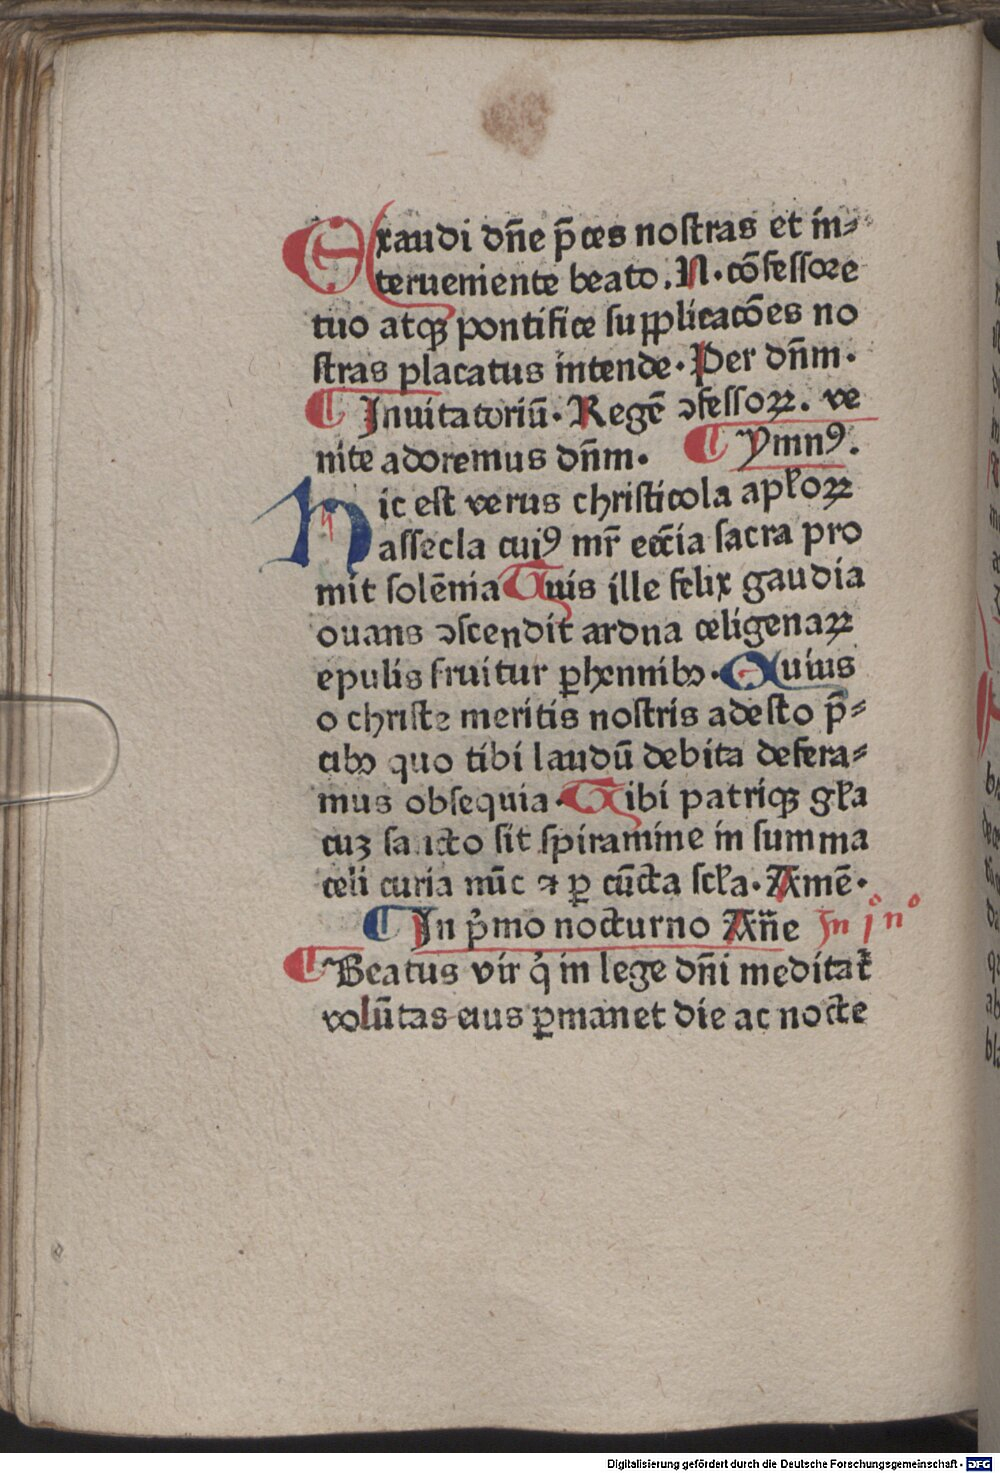 Exaudi dn̄e p̄ces nostras et in⸗
terueniente beato. N. cōfessore
tuo atqꝫ pontifice supplicacōes no
stras placatus intende. Per dn̄m.
¶ Inuitatoriū. Regē ꝯfessoꝝ. ve
nite adoremus dn̄m. ¶ Ymnꝰ.
Hic est verus christicola apl̄oꝝ
assecla cuiꝰ mr̄ ecc̄ia sacra pro
mit solēnia Quis ille felix gaudia
ouans ꝯscendit ardua celigenaꝝ
epulis fruitur ꝑhennibꝫ. Cuius
o christe meritis nostris adesto p̄⸗
cibꝫ quo tibi laudū debita defera⸗
mus obsequia. Tibi patriqꝫ gl̄a
cuꝫ sancto sit spiramine in summa
celi curia nūc ⁊ ꝑ cūcta scl̄a. Amē.
¶ In p̓mo nocturno An̄e In jº nº
¶ Beatus vir q̓ in lege dn̄i meditat᷑
volūtas eius ꝑmanet die ac nocte
Digitalisierung gefördert durch die Deutsche Forschungsgemeinschaft - DFG